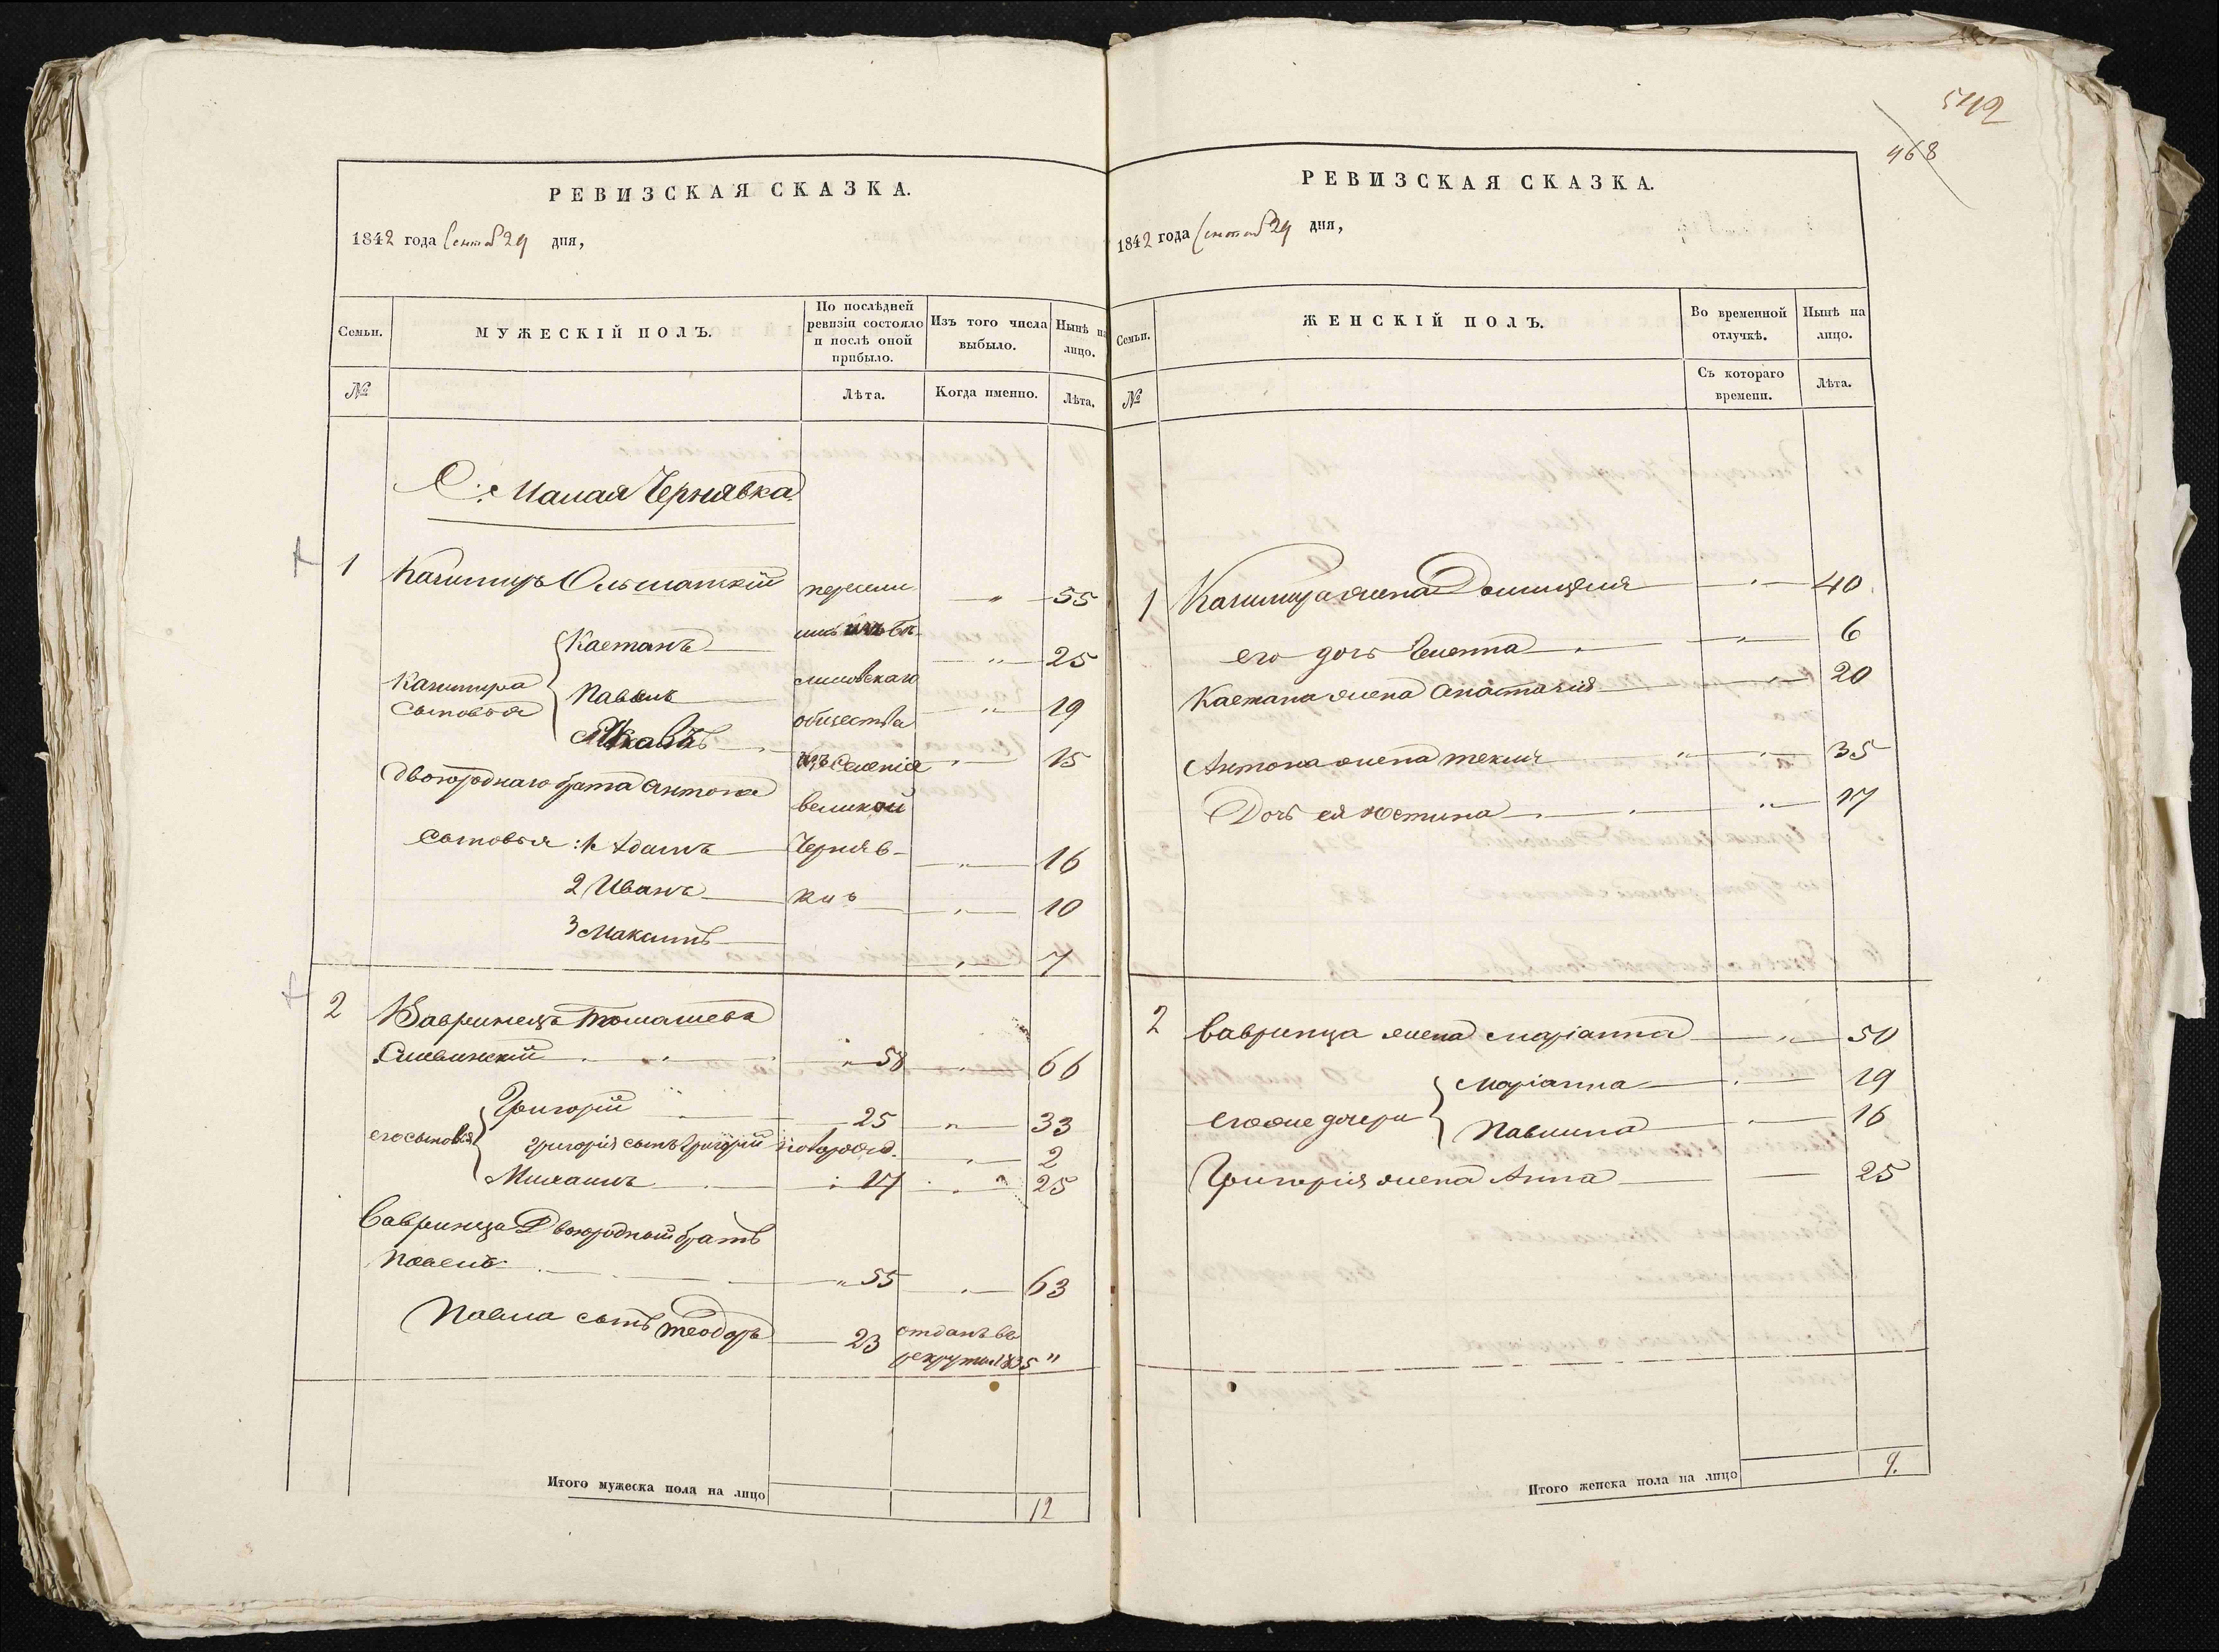 РЕВИЗСКАЯ СКАЗКА.
1842 года Сентяб 29 дня,
Семьи.
МУЖЕСКІЙ ПОЛЪ.
По послѣдней
ревизіи состояло
и послѣ оной
прибыло.
Изъ того числа
выбыло.
Нынѣ на
лицо.
№
Лѣта.
Когда именно.
Лѣта.
С. Малая Чернявка
1 Казимиръ пересели „ 55
Каетанъ 25
Казимира
сыновья
Павелъ слиновскаго „ 19
Яковъ общества 15
изъ Селенія
двоюроднаго брата Антона великой
сыновья: 1 Адамъ Черняв- „ 16
2 Иванъ ки „ 10
3 Максимъ „ 7
2 Вавринецъ Томашевъ
58 „ 66
Григорій 25 „ 33
его сыновья Григорія сынъ Григорій новорожд. „ 2
Михаилъ 17 „ 25
Вавринца Двоюродный братъ
Павелъ „ 55 „ 63
Павла сынъ Теодоръ 23 отданъ въ
рекруты 1835 "
Итого мужеска пола на лицо 12
542
468
РЕВИЗСКАЯ СКАЗКА.
1842 года Сентяб 29 дня,
Семьи.
ЖЕНСКІЙ ПОЛЪ.
Во временной
отлучкѣ.
Нынѣ на
лицо.
№
Съ котораго
времени.
Лѣта.
1 Казимира жена Домицеля „ 40
его дочь „ 6
Каетана жена Анастазія „ 20
Антона жена Текля „ 35
Дочь ея Юстина „ 17
2 Вавринца жена Маріанна „ 50
Маріанна 19
его же дочери
Павлина 16
Григорія жена Анна 25
Итого женска пола на лицо 9.